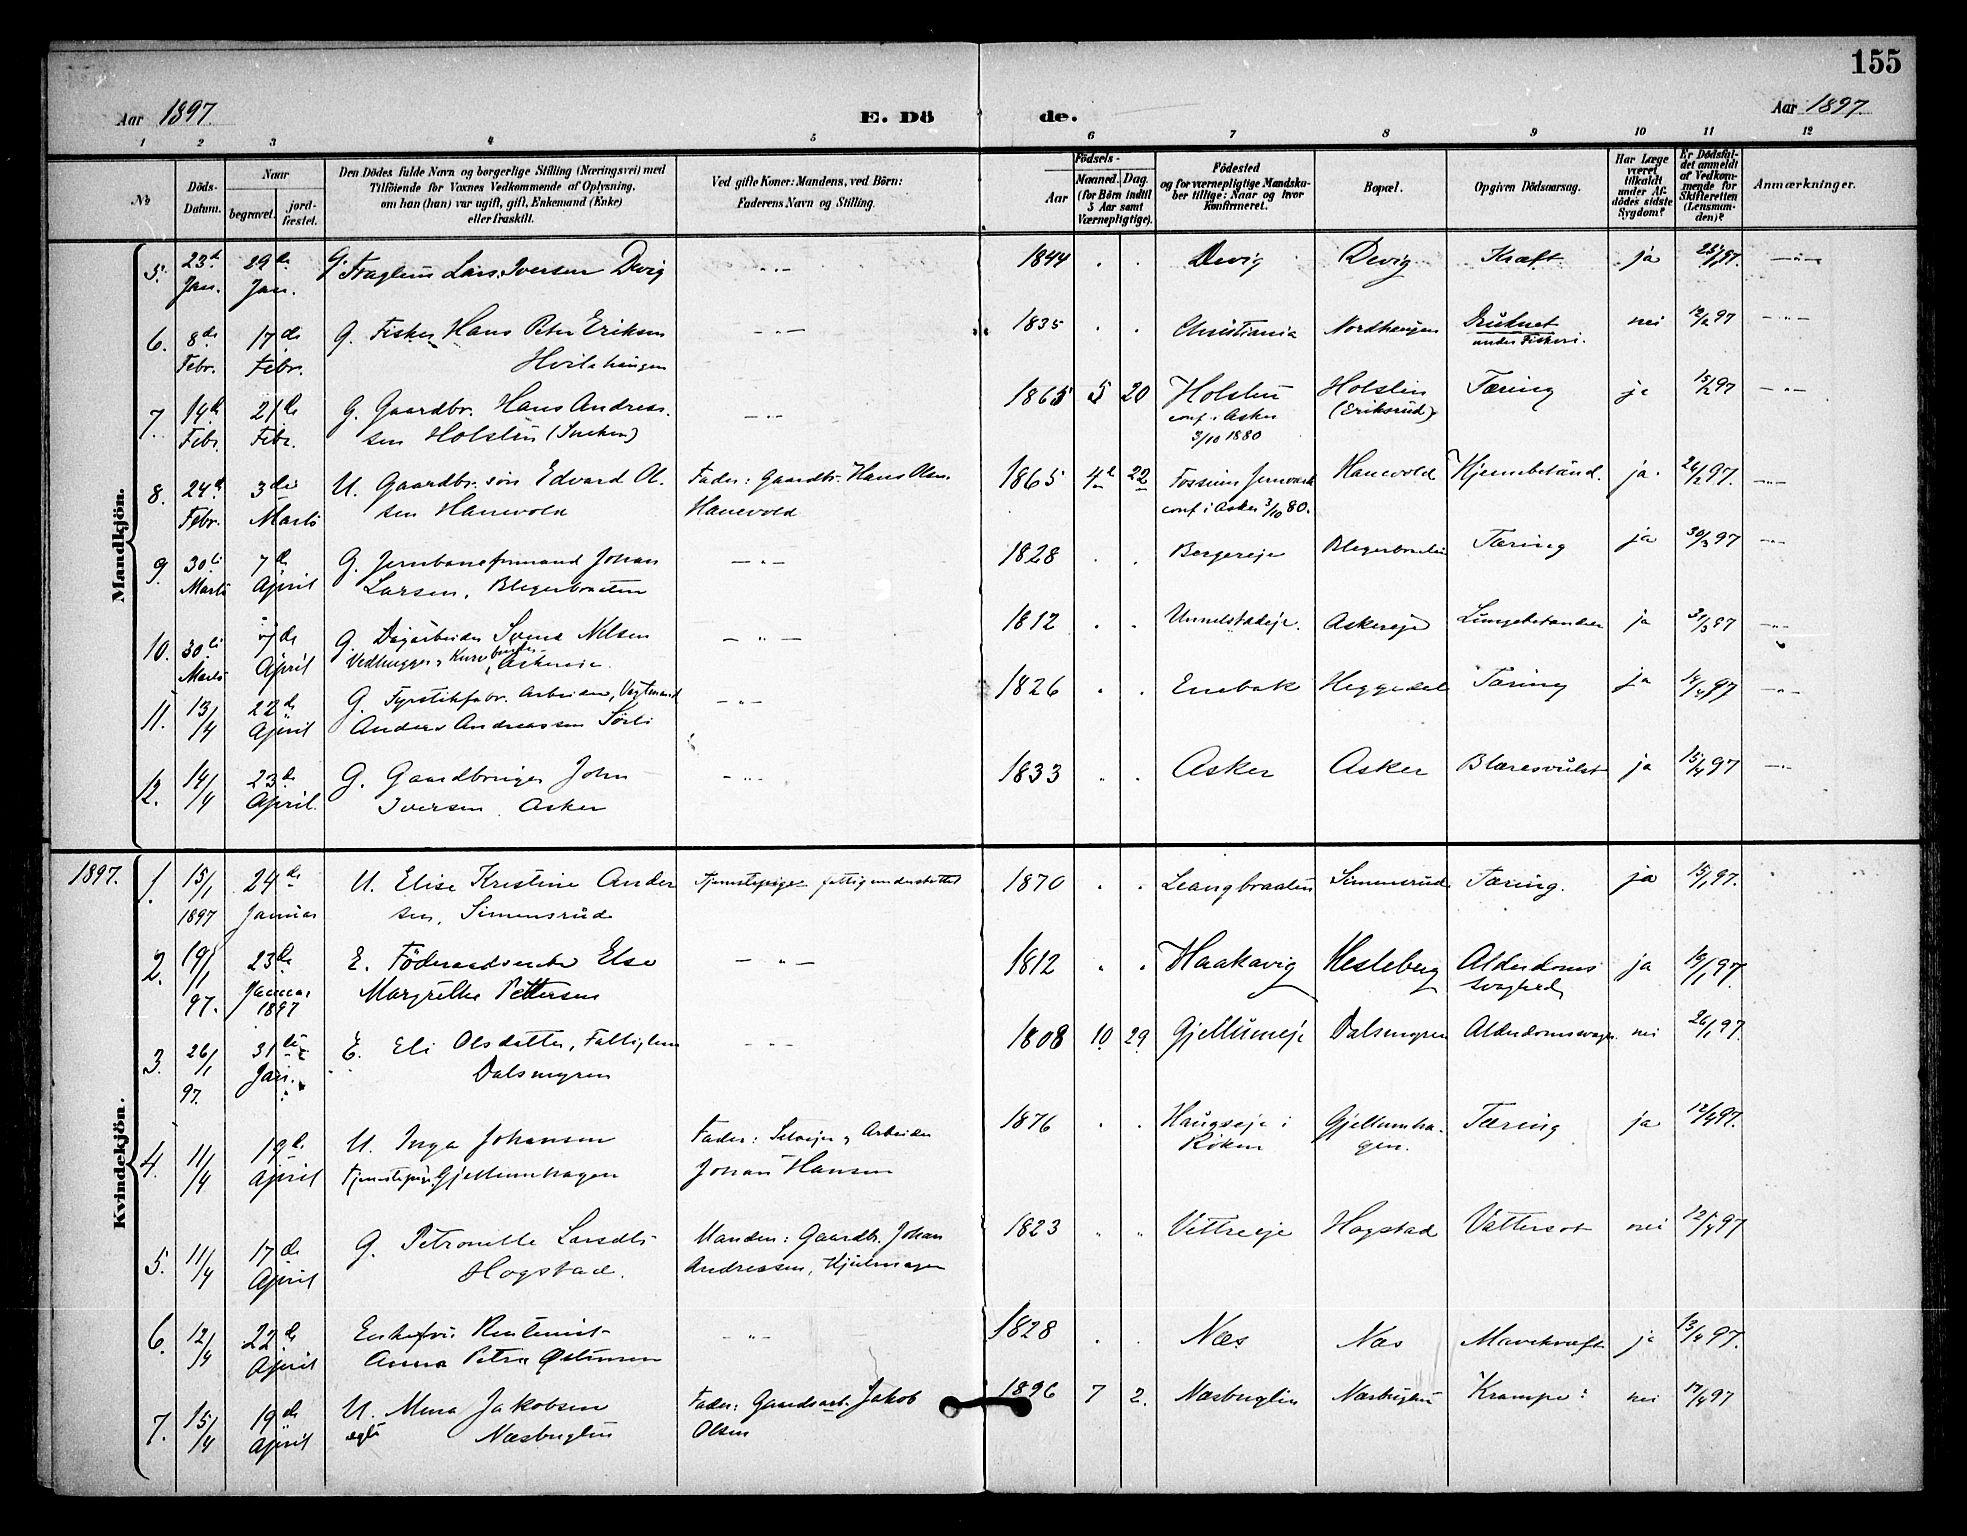 155
Aar 1897.
E. Dö
de.
Aar 1897.
1 2 3 4 5 6 7 8 9 10 11 12
No
Döds-
Datum.
Naar
begravet.
jord-
fæstet.
Den Dödes fulde Navn og borgerlige Stilling (Næringsvei) med
Tilföiende for Voxnes Vedkommende af Oplysning,
om han (hun) var ugift, gift, Enkemand (Enke)
eller fraskilt.
Ved gifte Koner: Mandens, ved Börn:
Faderens Navn og Stilling.
Födsels-
Aar
Maaned.
Dag.
(for Börn indtil
5 Aar samt
Værnepligtige).
Födested
og for værnepligtige Mandska-
ber tillige: Naar og hvor
konfirmeret.
Bopæl.
Opgiven Dödsaarsag.
Har Læge
været
tilkaldt
under Af-
dödes sidste
Sygdom?
Er Dödsfal-
det anmeldt
af Vedkom-
mende for
Skifteretten
(Lensman-
den)?
Anmærkninger.
Mandkjön.
5. 23d Jan. 29de Jan. G. Lars Iversen Devig — " — 1844 . . Devig Devig Kræft ja 97. — " —
6. 8de Febr. 17de Febr. G. Fisker Hans Peter Eriksen — " — 1835 . . Christiania Nordhaugen Druknet nei 12/2 97 — " —
under Fiskeri.
7. 14de Febr. 21de Febr. G. Gaardbr. Hans Andreas- — " — 1865 5 20 Holstin Holstin Tæring ja 15/2 97 — " —
sen Holstin
conf. i Asker (Eriksrud)
3/10 1880
8. 24d Febr. 3die Marts U. Gaardbr. sön Edvard Ol- Fader: Gaardbr. Hans Olsen 1865 4 22 Fossum Jernværk Hanevold Hjernebetänd. ja. 26/2 97. — " —
sen Hanevold Hanevold conf. i Asker 3/10 80.
9. 30te Marts 7de April G. Jernbaneformand Johan — " — 1828 . . Bergereje Blegerbraaten Tæring ja 30/3 97 — " —
Larsen, Blegerbraaten
10. 30te Marts 7de April G. Dagarbeider Svend Nilsen — " — 1812 . . Askereje ja 31/3 97 — " —
Vedhugger & Kurvbinder, Askereie.
11. 13/4 22de April G. Fyrstikfabr. Arbeider, — " — 1826 . . Enebak Heggedal Tæring ja 14/4 97 — " —
Anders Andreassen Sörli
12. 14/4 23de April. G. Gaardbruger John — " — 1833 . . Asker Asker Blæresvulst ja 15/4 97 — " —
Iversen Asker
Kvindekjön.
1897. 1. 15/1 1897 24de Januar U. Elise Kristine Ander Tjenestepige fattigunderstöttet 1870 . . Leangbraaten Simensrud Tæring. ja 15/1 97.
sen, Simensrud
2. 19/1 97. 23de Januar 1897 E. Föderaadsenke Else — " — 1812 . . Haakavig Hesleberg Alderdoms ja 19/1 97.
Margrethe Pettersen svaghed
3. 26/1 97. 31te Jan. E. Eli Olsdatter, Fattiglem — " — 1808 10 29 Gjellumeje Dalsmyren Alderdomssvagh. nei 26/1 97.
Dalsmyren
4. 11/4 19de April U. Inga Johansen Fader: Selveier & Arbeider 1876 . . Haugseje i Gjellumha- Tæring ja 12/4 97.
Tjenestepige Gjellumhagen Johan Hansen Röken gen.
5. 11/4 17de April G. Petronelle Larsdtr Manden: Gaardbr. Johan 1823 . . Vettreeje Hogstad Vattersot nei 12/4 97
Hogstad. Andreassen, Hjulmager
6. 12/4 22de April Enkefru Rentenist — " — 1828 . . Næs Næs Mavekræft ja 13/4 97.
Anna Petra
7. 15/4 19de April U. Mina Jakobsen Fader: Gaardsarb. Jakob 1896 7 2. Næsbuglin Næsbuglin Krampe nei 17/4 97
egte Næsbuglin Olsen